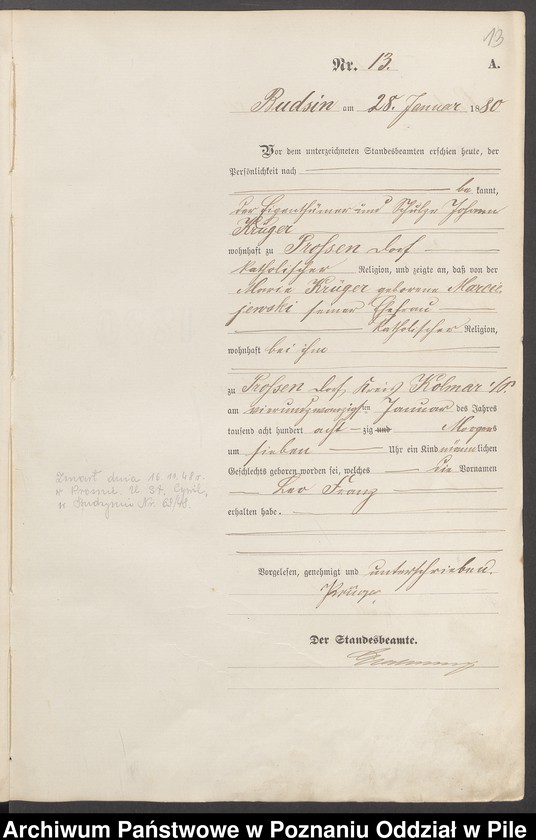 13
Nr. 13.
A.
Budsin am 28. Januar 1880
Vor dem unterzeichneten Standesbeamten erschien heute, der
Persönlichkeit nach
be kannt,
der Eigenthümer und Schulze Johann
Krüger
wohnhaft zu Prossen Dorf
katholischer Religion, und zeigte an, daß von der
Marie Krüger geborene Marcie
jewski seiner Ehefrau
katholischer Religion,
wohnhaft bei ihm
zu Prossen Dorf, Kreis Kolmar i/P.
am vierundzwanzigsten Januar des Jahres
tausend acht hundert acht zig und Morgens
um sieben Uhr ein Kind männlichen
Geschlechts geboren worden sei, welches die Vornamen
Leo Franz
erhalten habe.
Zmarł dnia 16.11.48 r.
w U. St. Cywil.
w Budzyniu Nr. 63/48.
Vorgelesen, genehmigt und unterschrieben.
Krüger
Der Standesbeamte.
Archiwum Państwowe w Poznaniu Oddział w Pile